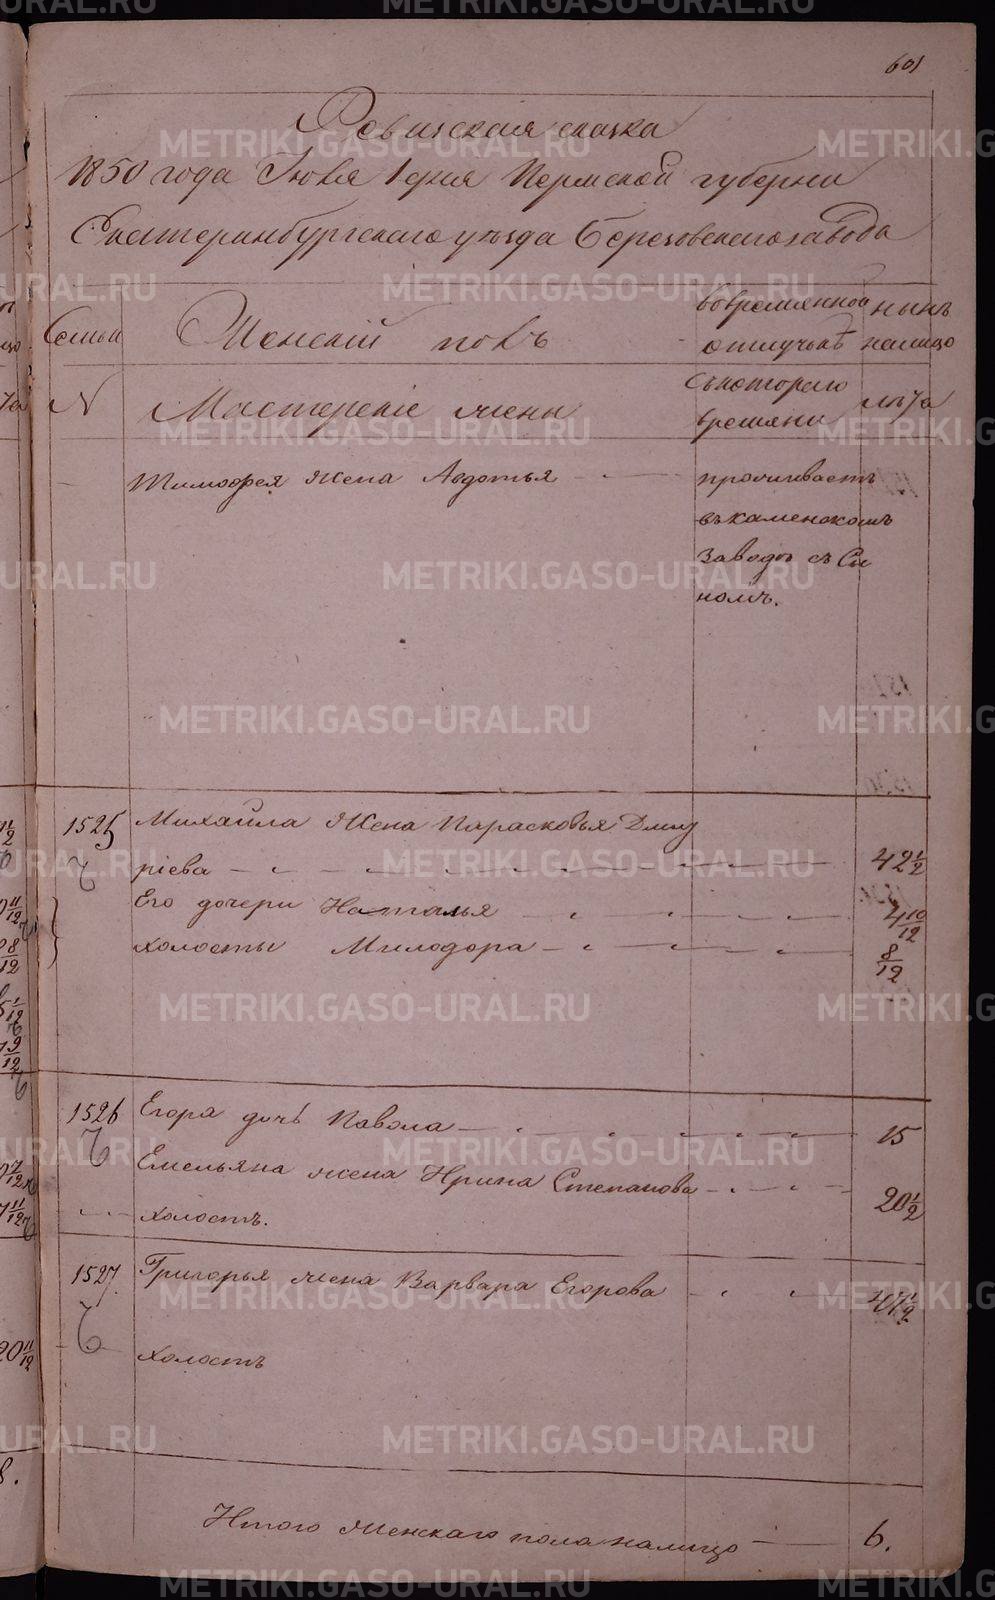 601
Ревизская сказка
1850 года Июля 1 дня Пермской губернии
Екатеринбургскаго уезда Березовскаго завода
Семьи
Женскій полъ
во временной отлучкѣ
нынѣ налицо
N
Мастерскіе жены
съ котораго времяни
лѣта
Тимофея жена Авдотья
проживаетъ
въ каменскомъ
Заводѣ съ Сы
номъ.
1525 Михайла жена Парасковья Дмит
ріева 42 1/2
Его дочери Наталья 4 10/12
холосты Милодора 8/12
1526 Егора дочь Павола 15
Емельяна жена Ирина Степанова 20 1/2
холостъ.
1527. Григорья жена Варвара Егорова 47 1/2
холостъ
Итого женскаго пола налицо 6.
METRIKI.GASO-URAL.RU